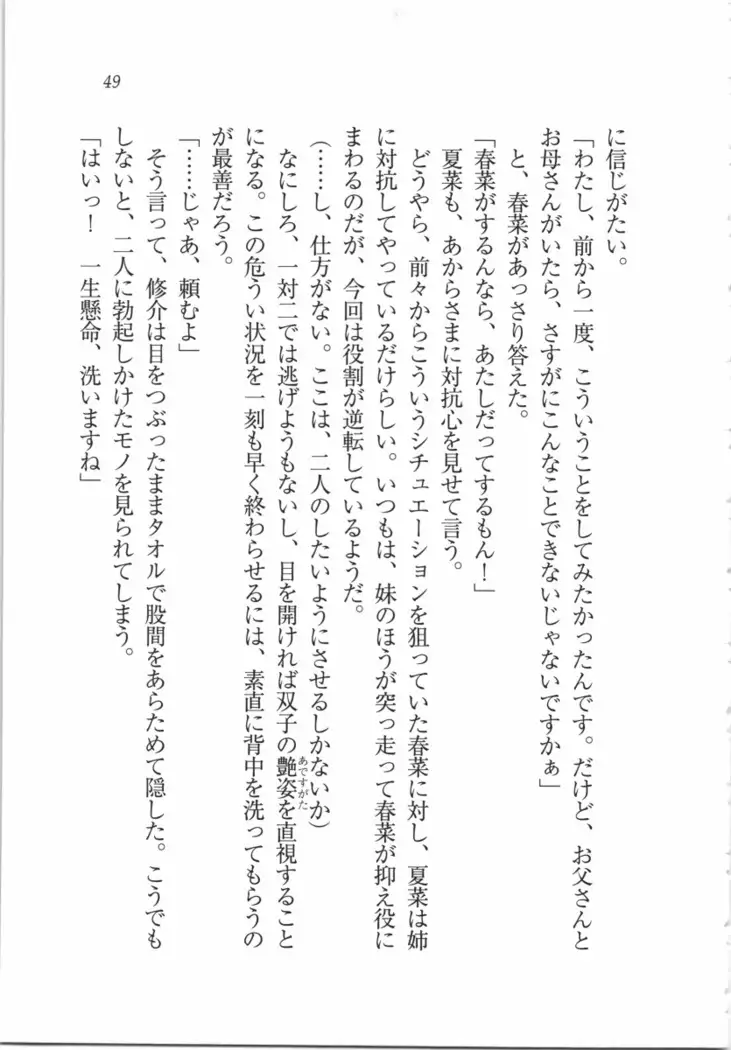 49
に信じがたい。
「わたし、前から一度、こういうことをしてみたかったんです。だけど、お父さんと
お母さんがいたら、さすがにこんなことできないじゃないですかぁ」
と、春菜があっさり答えた。
「春菜がするんなら、あたしだってするもん！」
夏菜も、あからさまに対抗心を見せて言う。
どうやら、前々からこういうシチュエーションを狙っていた春菜に対し、夏菜は姉
に対抗してやっているだけらしい。いつもは、妹のほうが突っ走って春菜が抑え役に
まわるのだが、今回は役割が逆転しているようだ。
(……し、仕方がない。ここは、二人のしたいようにさせるしかないか)
なにしろ、一対二では逃げようもないし、目を開ければ双子の艶姿を直視すること
あですがた
になる。この危うい状況を一刻も早く終わらせるには、素直に背中を洗ってもらうの
が最善だろう。
「……じゃあ、頼むよ」
そう言って、修介は目をつぶったままタオルで股間をあらためて隠した。こうでも
しないと、二人に勃起しかけたモノを見られてしまう。
「はいっ！　一生懸命、洗いますね」